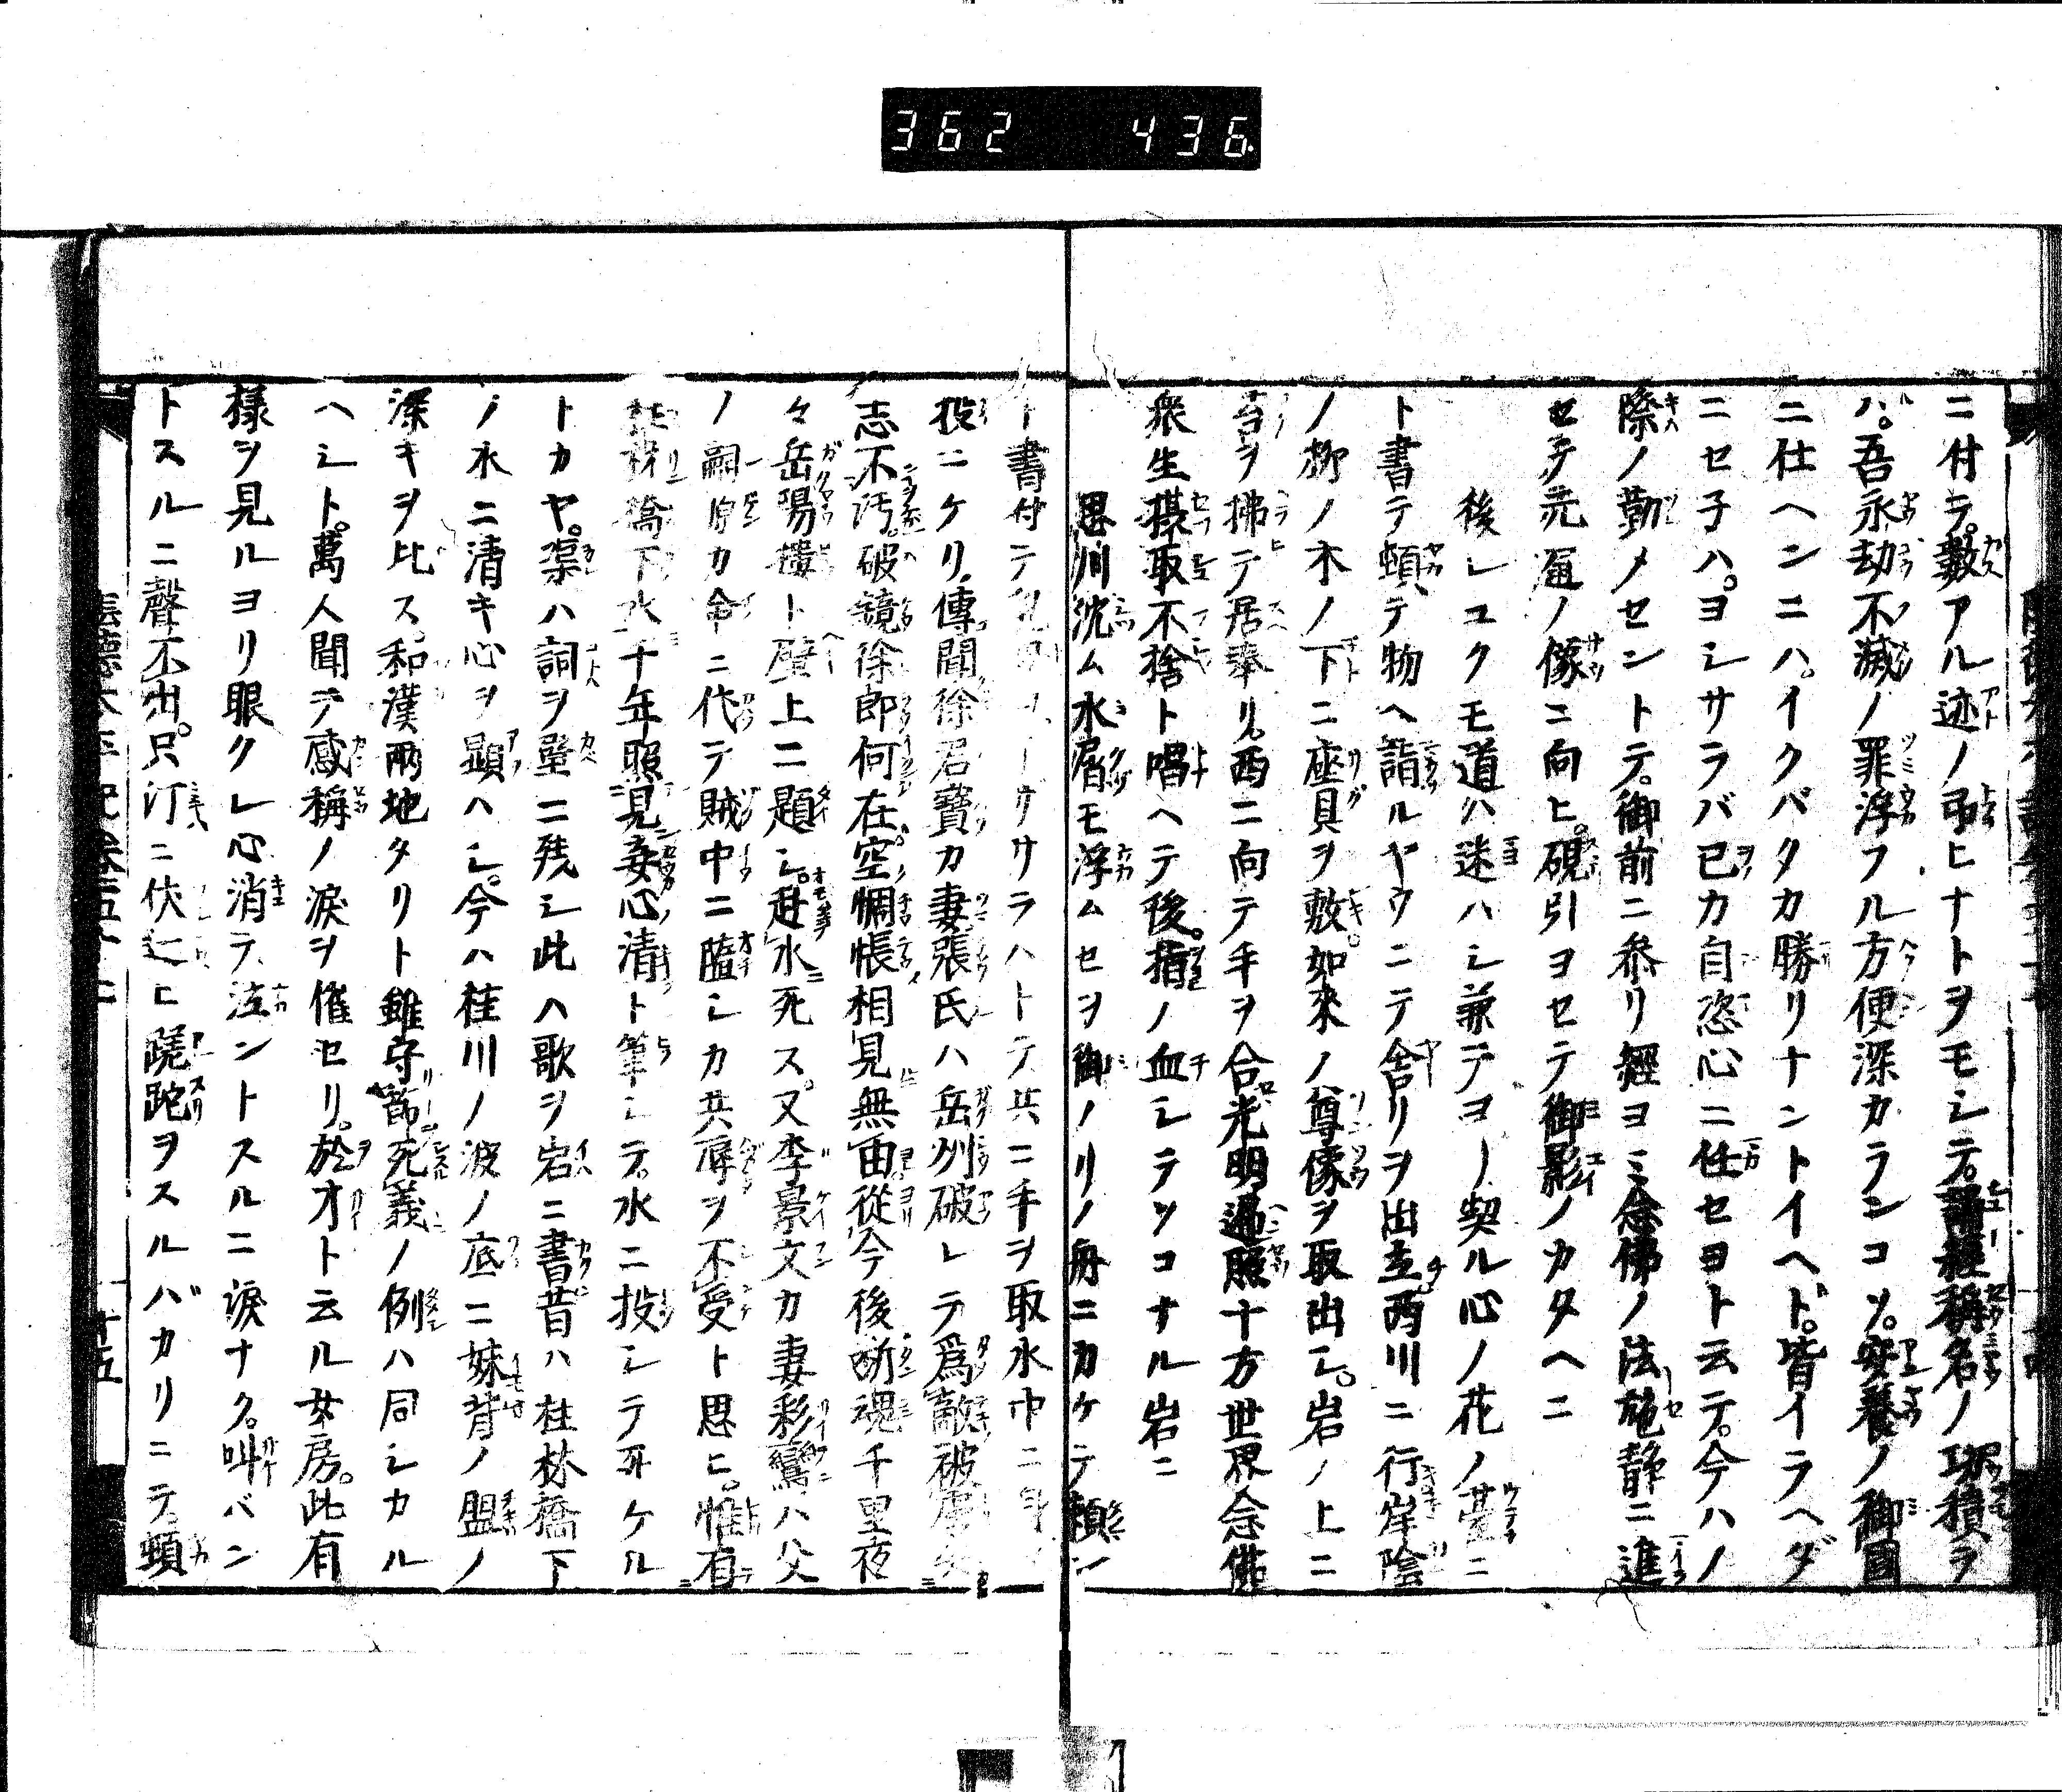 362 436
ニ付テ。數アル迹ノ弔ヒナトヲモシテ。誦經稱名ノ功積ラ
ハ。吾永劫不滅ノ罪浮フル方便深カランコソ。安養ノ御國
ニ仕ヘンニハ。イクバタカ勝リナントイヘド。皆イラヘダ
ニセ子ハ。ヨシサラバ已カ自恣心ニ任セヨト云テ。今ハノ
際ノ勤メセントテ。御前ニ參リ經ヨミ念佛ノ法施靜ニ進
セ 元逼ノ像ニ向ヒ。硯引ヨセテ御影ノカタヘニ
後レユクモ道ハ迷ハシ兼テヨリ契ル心ノ花ノ臺ニ
ト書テ頓テ物ヘ詣ルヤウニテ舎リヲ出立西川ニ行岸陰
ノ栁ノ木ノ下ニ座具ヲ敷。如來ノ尊像ヲ取出シ。岩ノ上ニ
苔ヲ拂テ居奉リ。西ニ向テ手ヲ合光明遍照十方世界念佛
衆生攝取不捨ト唱ヘテ後。指ノ血シテツコナル岩ニ
思川沈ム水屑モ浮ムセヲ御ノリノ舟ニカケテ頼ン
ト書付テ サラハトテ共ニ手ヲ取水中ニ
投ニケリ。傳聞徐君寶カ妻張氏ハ岳州破レテ爲敵被
志不汚。破鏡徐郎何在空惆悵相見無由從今後斷魂千里夜
々岳陽樓ト壁上ニ題シ。赴水死ス。又李景文カ妻彩鸞ハ父
ノ嗣 カ命ニ代テ賊中ニ陷シカ共辱ヲ不受ト思ヒ。惟有
桂林橋下水千年照見妾心清ト筆シテ。水ニ投シテ死ケル
トカヤ。渠ハ詞ヲ壁ニ殘シ此ハ歌ヲ岩ニ書昔ハ桂林橋下
ノ水ニ清キ心ヲ顯ハシ。今ハ桂川ノ波ノ底ニ妹背ノ盟ノ
深キヲ比ス。和漢兩地タリト雖守節死義ノ例ハ同シカル
ヘシト。萬人聞テ感稱ノ淚ヲ催セリ。於才ト云ル女房。此有
樣ヲ見ルヨリ眼クレ心消テ泣ントスルニ淚ナク。叫バン
トスルニ聲不出。只汀ニ伏辷ヒ蹺跎ヲスルバカリニテ。頓
十五